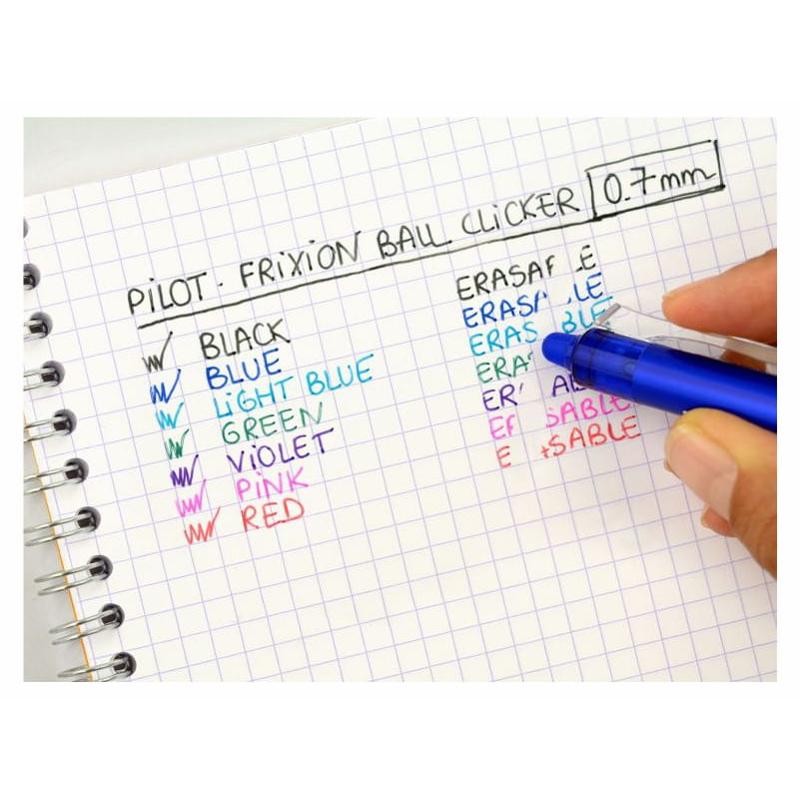 PiLOT . FRiXiON BALL CLiCKER 0.7mm
BLACK
BLUE
LiGHT BLUE
GREEN
ViOLET
PiNK
RED
ERASA E
ERAS LE
ERAS BLE
ERA
ER A
E SABLE
E SABLE